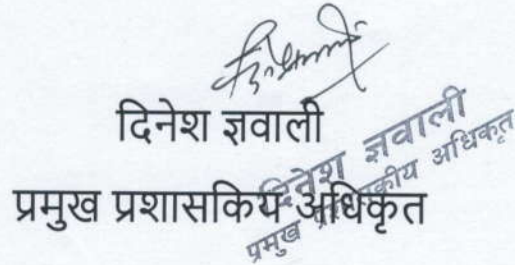 दिनेश ज्ञवाली
प्रमुख प्रशासकिय अधिकृत
दिनेश ज्ञवाली
प्रमुख प्रशासकीय अधिकृत